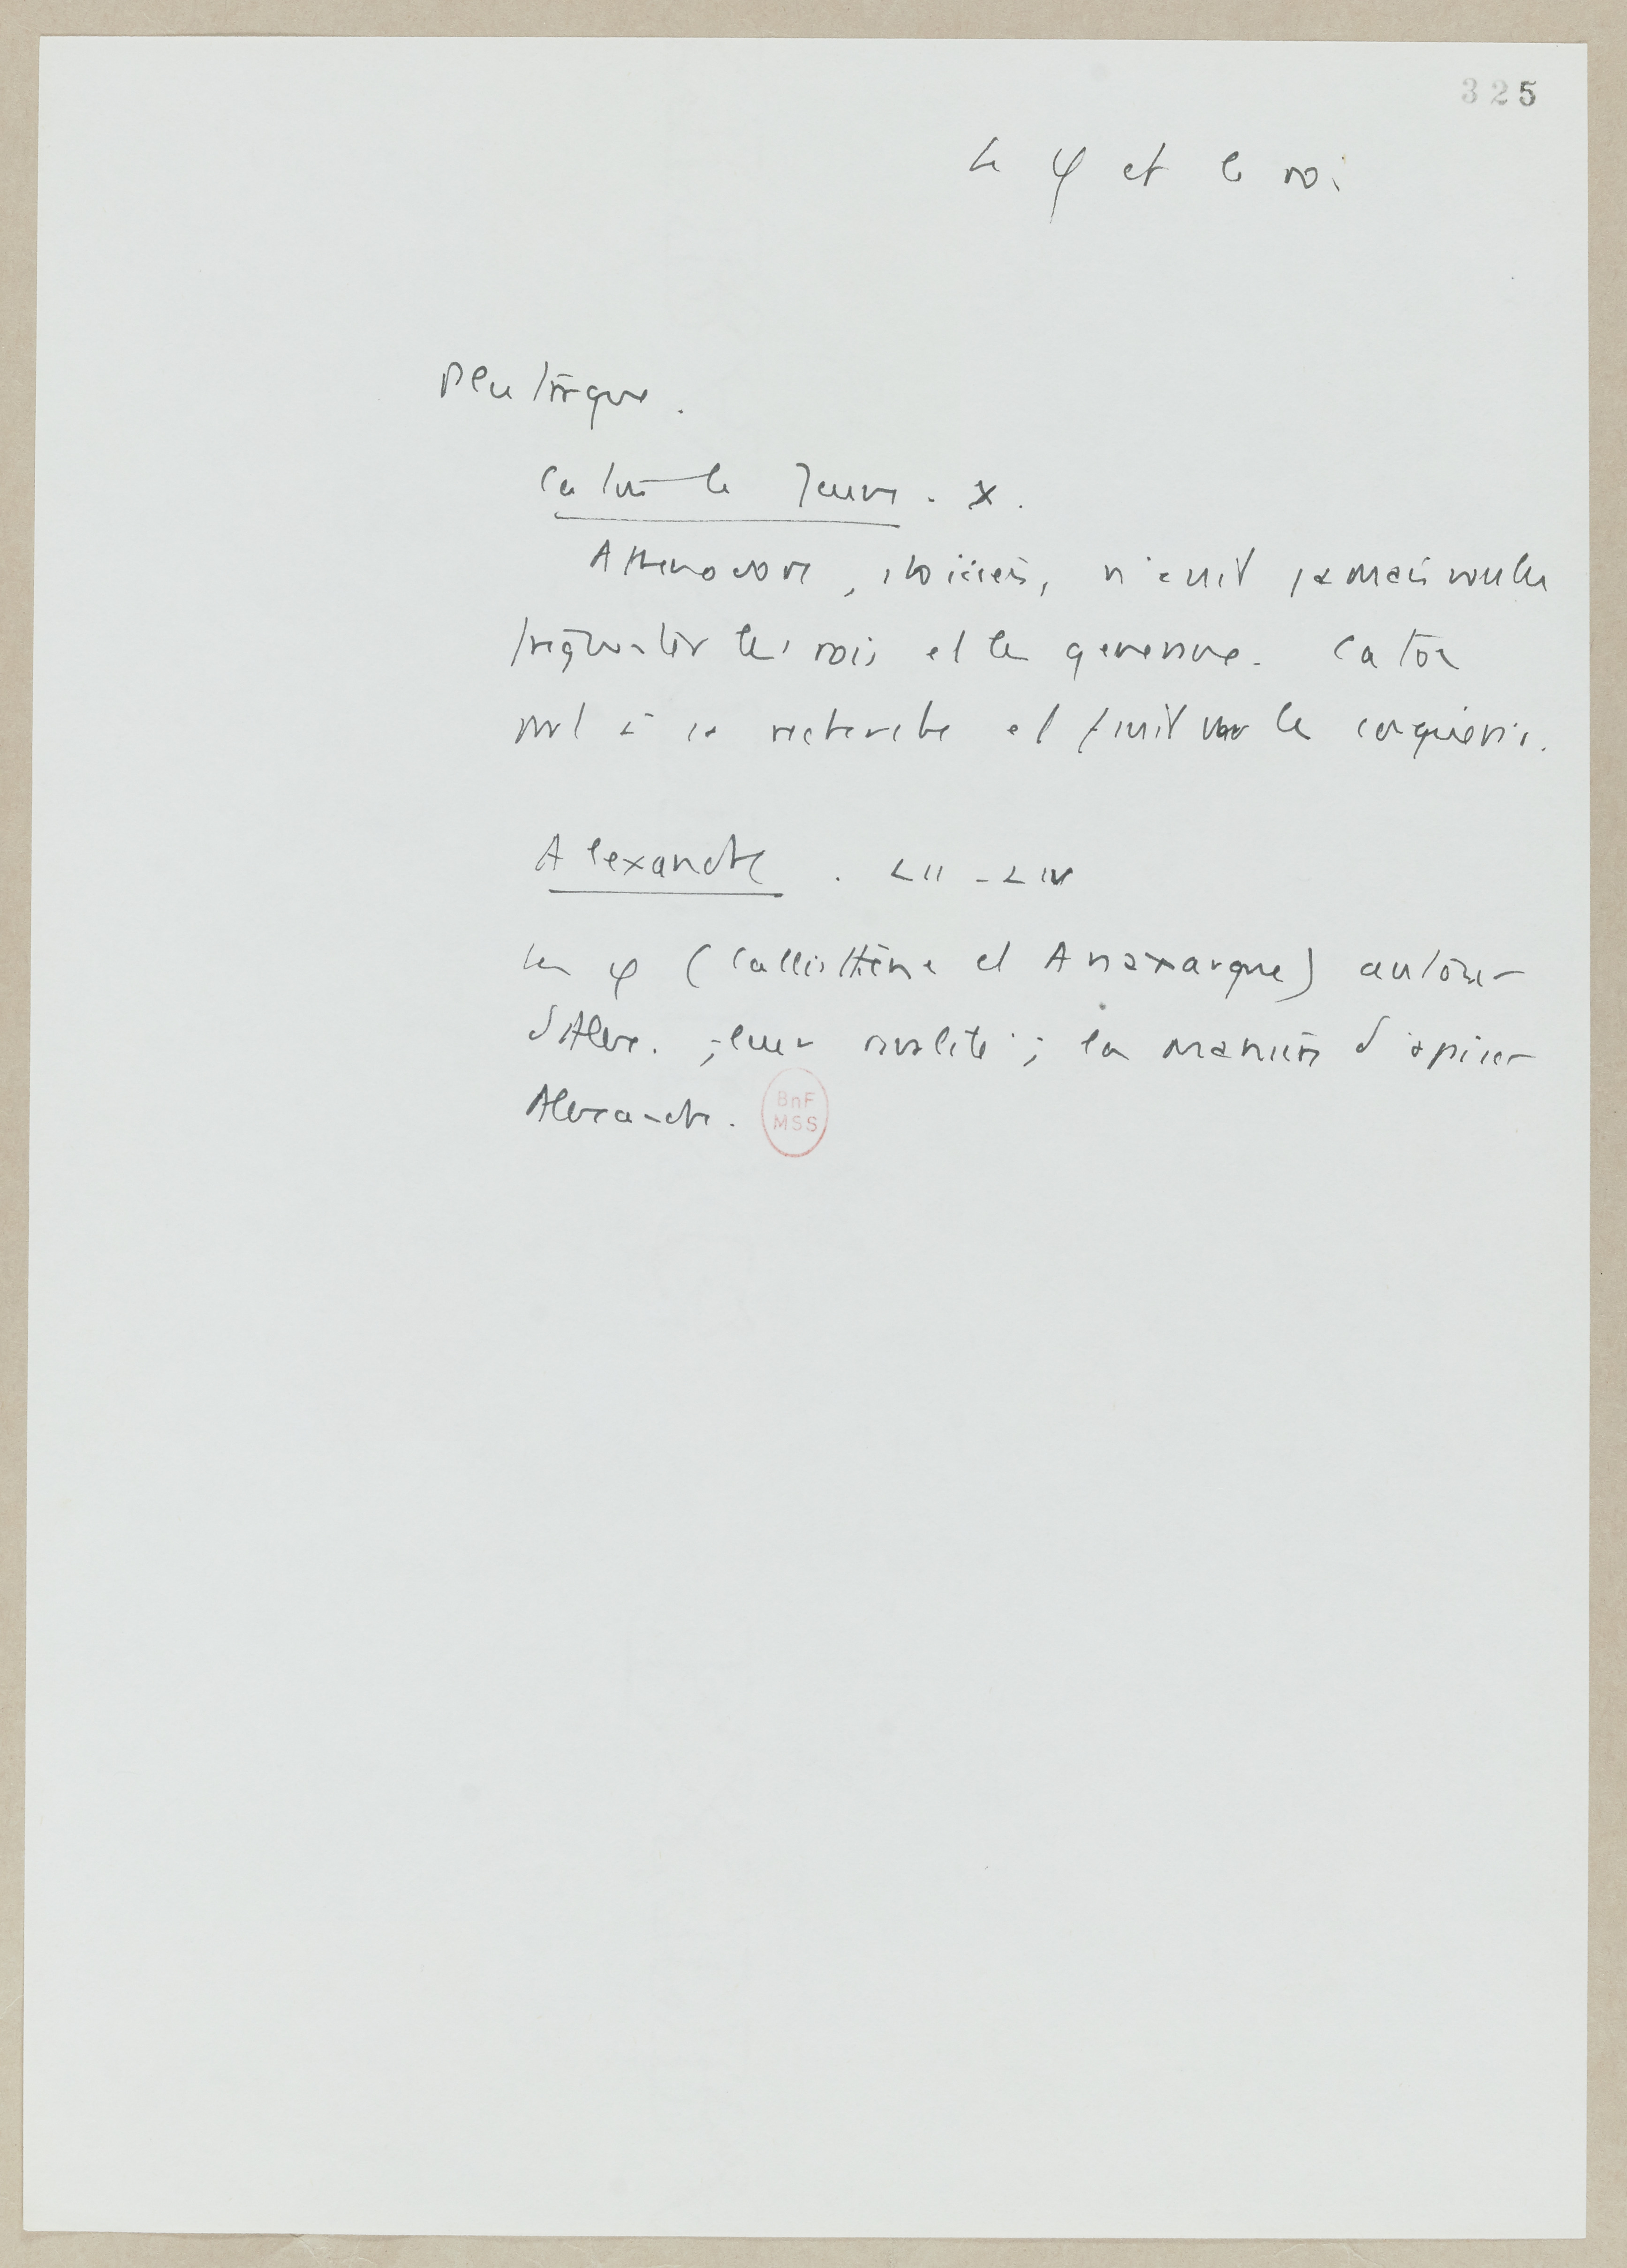 325
Le φ et le roi
Plutarque.
Caton le Jeune. X.
Athenodore, stoicien, n'avait jamais voulu
fréquenter les rois et les generaux. Caton
part à sa recherche et finit par le conquérir.
Alexandre. LII - LIV
Les φ (Callisthène et Anaxarque) autour
d'Alex. ; leur rivalité ; la manière d'apaiser
Alexandre.
BnF
MSS